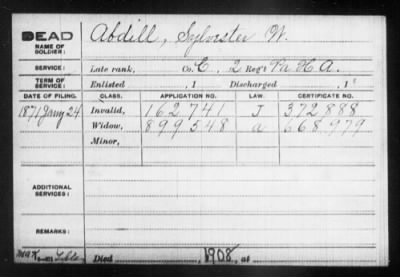 DEAD Abdill, Sylvester W.
NAME OF SOLDIER:
SERVICE: Late rank, Co. C, 2 Reg't Pa. H. A.
TERM OF SERVICE: Enlisted , 1 Discharged , 1
DATE OF FILING. CLASS. APPLICATION NO. LAW. CERTIFICATE NO.
1871 Jany 24 Invalid, 162741 J 372888
Widow, 899548 a 668979
Minor,
ADDITIONAL SERVICES:
REMARKS:
Died 1908, at